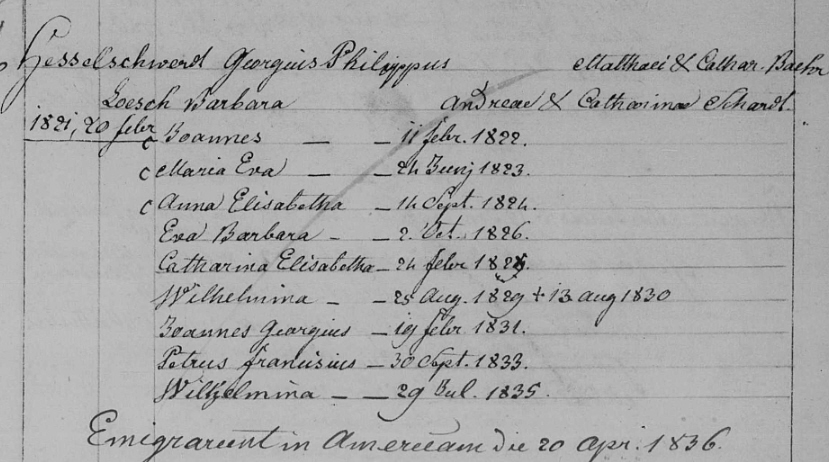 Hesselschwerd Georgius Philippus Matthaei & Cathar. Baehr
Loesch Barbara Andreae & Catharinae Schardt.
1821, 20 febr
c Joannes — — 11 febr. 1822.
c Maria Eva — 24 Junj 1823.
c Anna Elisabetha — 14 Sept. 1824.
Eva Barbara — — 2. Oct. 1826.
Catharina Elisabetha — 24 febr 1828.
Wilhelmina — — 25 Aug. 1829 + 13 aug 1830
Joannes Georgius — 19 febr. 1831.
Petrus franciscus — 30 Sept. 1833.
Wilhelmina — — 29 Jul. 1835.
Emigrarunt in Americam die 20 Apr. 1836.